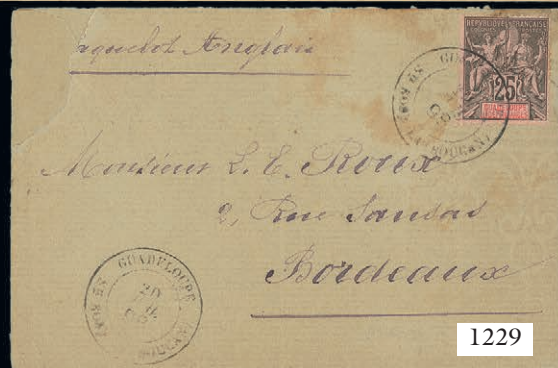 aquebot Anglais
RÉPUBLIQUE FRANÇAISE
25
Monsieur L. E. Roux
2, Rue Sansas
Bordeaux
GUADELOUPE
20
1229